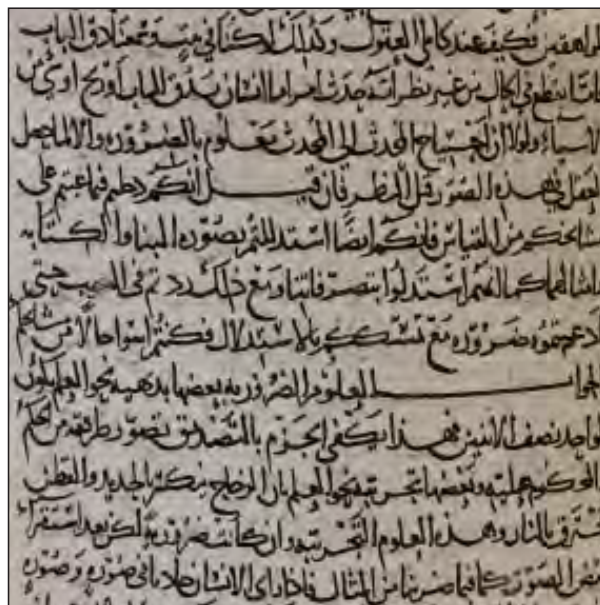 المراهقين فكيف عند كاملي العقول وكذلك لا كتابة
فانا نقطع في الحال من غير نظر انه حدث امر اما انسان يدق الباب او ريح او شيء من
الاسباب ولولا ان احتياج المحدث الى المحدث معلوم بالضرورة والا لما حصل
العقل في هذه الصور قبل النظر فان قيل انكم
مشايخكم من القياس فانكم ايضا استدللتم بصورة البناء والكتابة
وامثالهما كما انهم استدلوا بتصرفاتنا ومع ذلك رددتم حتى
ادعيتموه ضرورة مع تمسككم بالاستدلال فكنتم اسوا حالا من مشايخكم
الجواب العلوم الضرورية بعضها بديهية نحو العلم بكون
الواحد نصف الاثنين فهذا يكفي الجزم بالتصديق تصور طرفيه من المحكوم
والمحكوم عليه وبعضها تجربية نحو العلم بان الزجاج ينكسر بالحديد والقطن
يحترق بالنار وهذه العلوم التجربية وان كانت ضرورية لكن بعد استقراء
بعض الصور كما فيما ضربنا من المثال فاذا راى الانسان صورة وصورة